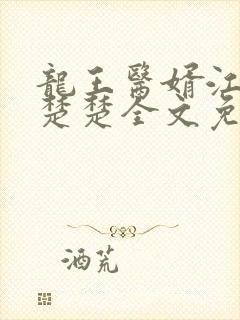 龍王醫婿江
楚楚全文免
酒荒